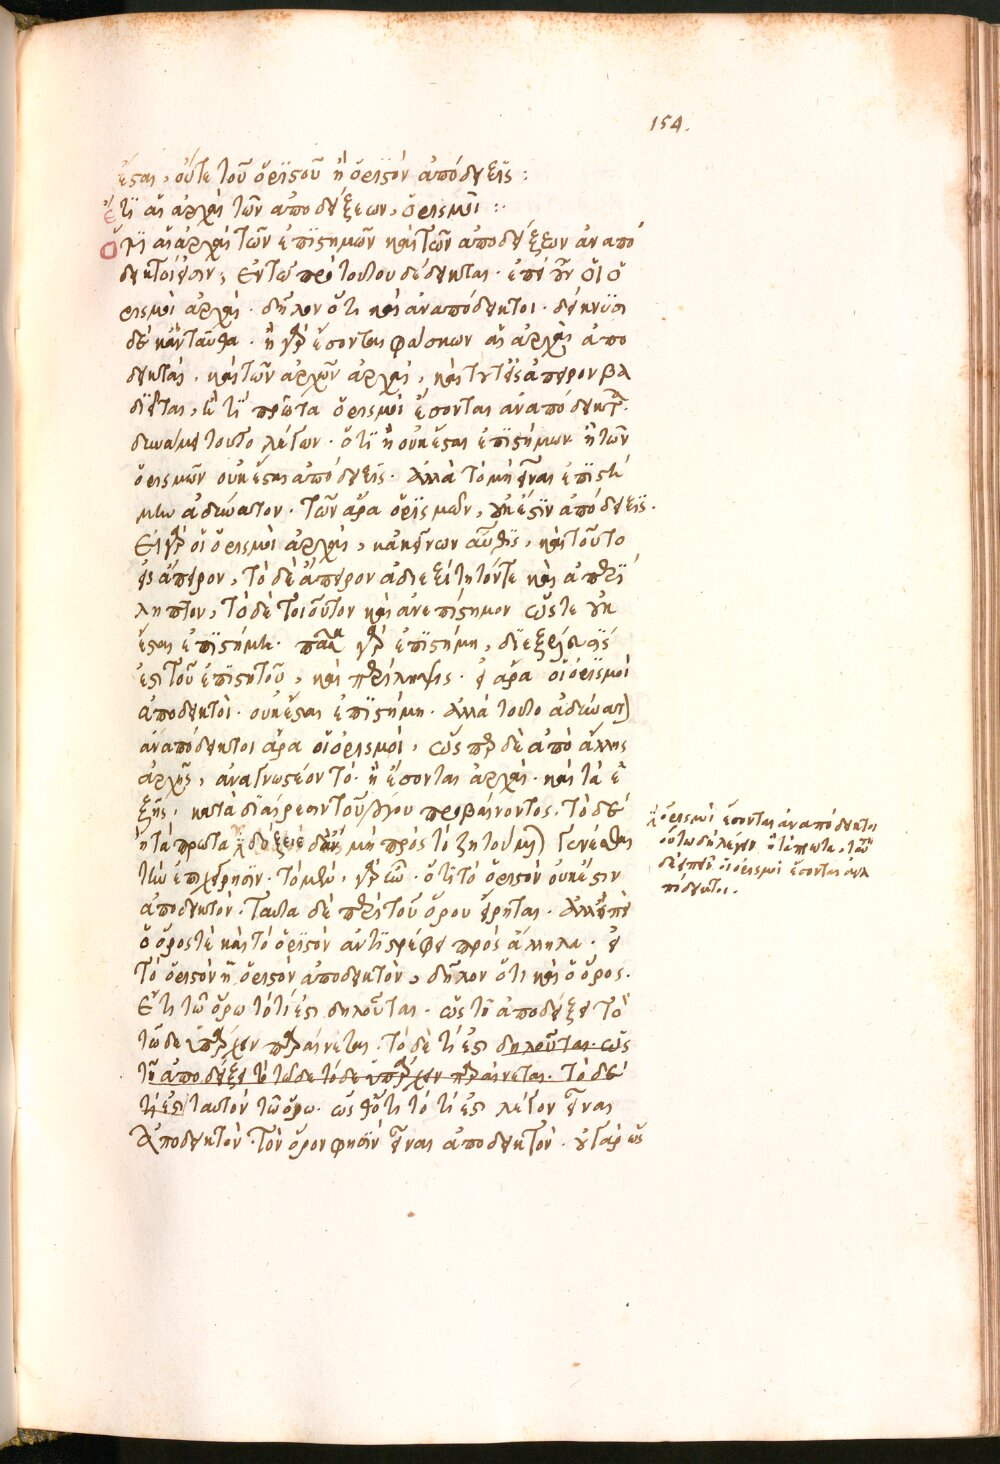 154.
ἔσται, οὔτε τοῦ ὁριστοῦ ἢ ὁριστόν ἀπόδειξις :
ἔτι αἱ ἀρχαὶ τῶν ἀποδείξεων, ὁρισμοὶ :
Ὅτι αἱ ἀρχαὶ τῶν ἐπιστημῶν καὶ τῶν ἀποδείξεων ἀναπό
δεικτοί εἰσιν, ἐν τῶ πρὸ τούτου δέδεικται. ἐπεὶ οὖν οἱ ὁ
ρισμοὶ ἀρχαὶ. δῆλον ὅτι καὶ ἀναπόδεικτοι. δείκνυσι
δὲ κἀνταῦθα. ἢ γὰρ ἔσονται φάσκων αἱ ἀρχαὶ ἀπο
δεικταὶ, καὶ τῶν ἀρχῶν ἀρχαὶ, καὶ τοῦτ' εἰς ἄπειρον βα
διεῖται, ἢ τὰ πρῶτα ὁρισμοὶ ἔσονται ἀναπόδεικτοι.
δυνάμει τοῦτο λέγων. ὅτι ἢ οὐκ ἔσται ἐπιστήμων ἢ τῶν
ὁρισμῶν οὐκ ἔσται ἀπόδειξις. ἀλλὰ τὸ μὴ εἶναι ἐπιστή
μην ἀδύνατον. τῶν ἄρα ὁρισμῶν, οὐκ ἔστιν ἀπόδειξις.
Εἰ γὰρ οἱ ὁρισμοὶ ἀρχαὶ, κἀκείνων αὖθις, καὶ τοῦτο
εἰς ἄπειρον, τὸ δὲ ἄπειρον ἀδιεξίτητόν τε καὶ ἀπερί
ληπτον, τὸ δὲ τοιοῦτον καὶ ἀνεπίστημον ὥστε οὐκ
ἔσται ἐπιστήμη. πᾶσα γὰρ ἐπιστήμη, διεξέλευσίς
ἐστι τοῦ ἐπιστητοῦ, καὶ περίληψις. εἰ ἄρα οἱ ὁρισμοὶ
ἀποδεικτοὶ. οὐκ ἔσται ἐπιστήμη. ἀλλὰ τοῦτο ἀδύνατον
ἀναπόδεικτοι ἄρα οἱ ὁρισμοὶ, ὥσπερ δὲ ἀπὸ ἄλλης
ἀρχῆς, ἀναγνωστέον τὸ. ἢ ἔσονται ἀρχαὶ. καὶ τὰ ἑ
ξῆς. κατὰ διαίρεσιν τοῦ λόγου προβαίνοντος. τὸ δὲ
ἢ τὰ πρῶτα μὴ πρὸς τὸ ζητούμενον γενέσθαι
τὴν ἐπιχείρησιν. ὅτι τὸ ὁριστὸν οὐκ ἔστιν
ἀποδεικτόν. ταῦτα δὲ περὶ τοῦ ὅρου εἴρηται. ἀλλ' ἐπεὶ
ὁ ὅρος τὲ καὶ τὸ ὁριστὸν ἀντιστρέφει πρὸς ἄλληλα. εἰ
τὸ ὁριστὸν ἢ ὁριστὸν ἀποδεικτὸν, δῆλον ὅτι καὶ ὁ ὅρος.
Ἔτι τῶ ὅρω τὸ τί ἐστι δηλοῦται. ὡς τῆ ἀποδείξει τὸ
τῶδε ὑπάρχειν περαίνεται. τὸ δὲ τί ἐστι δηλοῦται. ὡς
τῆ ἀποδείξει τὸ τῶδε τόδε ὑπάρχειν περαίνεται. τὸ δὲ
τί ἐστι ταυτὸν τῶ ὅρω. ὡς ὅτι τὸ τί ἐστι λέγον εἶναι
Ἀποδεικτὸν. τὸν ὅρον φησὶν εἶναι ἀποδεικτὸν. οὐ γὰρ ὡς
ὁρισμοὶ ἔσονται ἀναπόδεικτοι
οὕτω δὴ λέγειν ἢ τὰ πρῶτα, τῶν
δὲ οἱ ὁρισμοὶ ἔσονται ἀνα
πόδεικτοι.